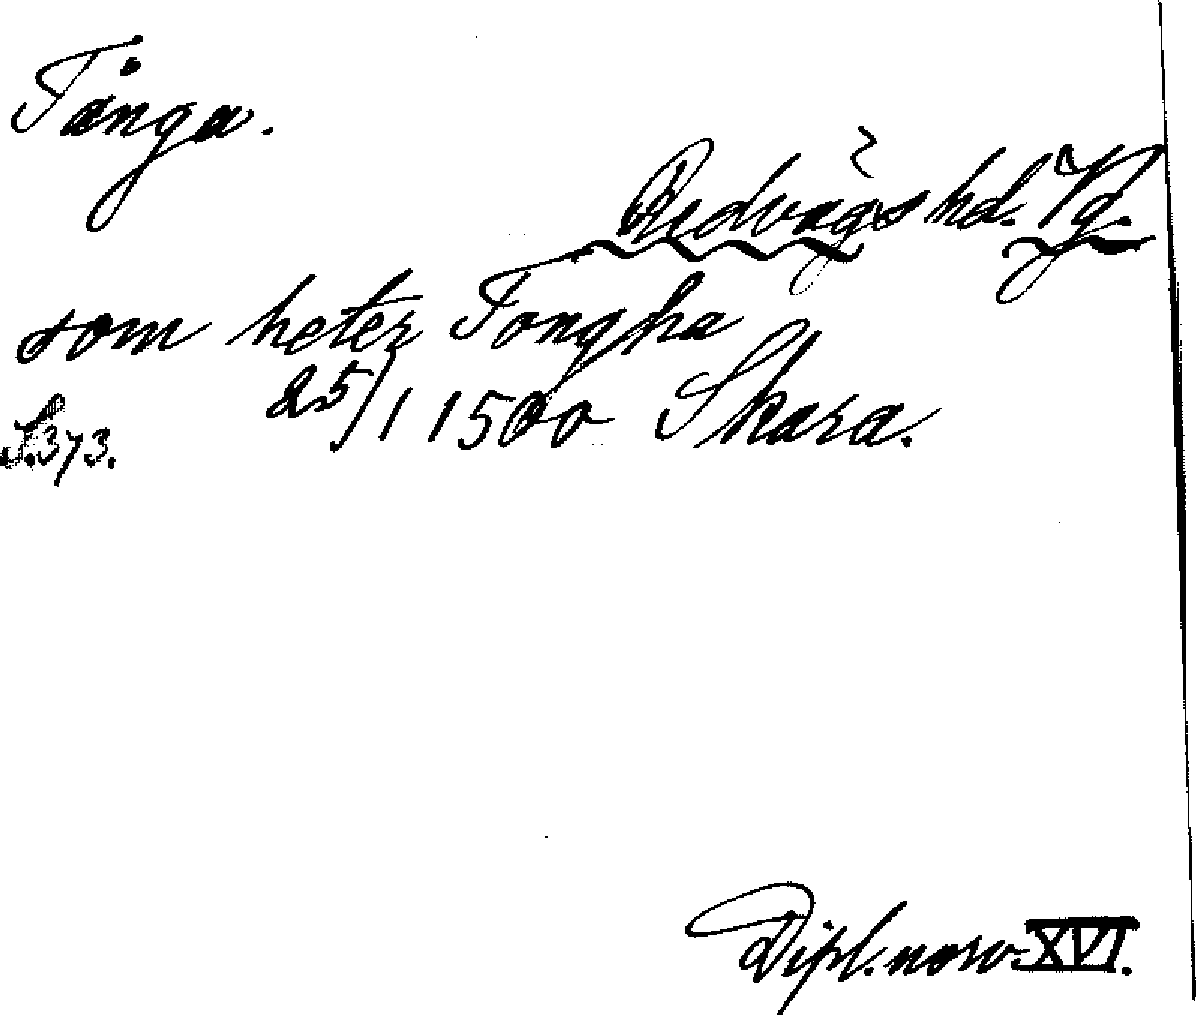 Tånga.
Redvägs hd. Vg.
som heter Tongha
25/1 1500 Skara.
S. 373.
Dipl. norv. XVI.